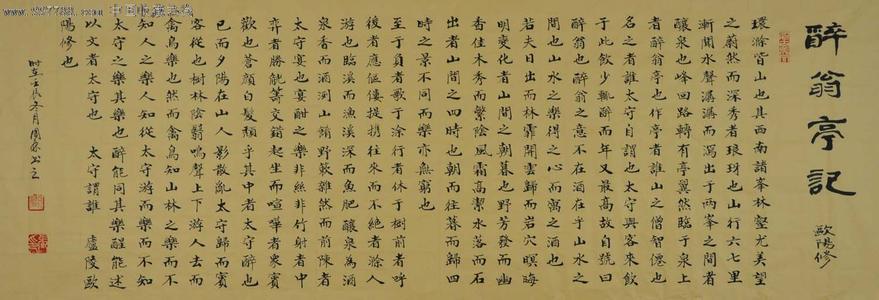 醉翁亭記
歐陽修
環滁皆山也其西南諸峯林壑尤美望
之蔚然而深秀者琅玡也山行六七里
漸聞水聲潺潺而瀉出于兩峯之間者
釀泉也峰回路轉有亭翼然臨于泉上
者醉翁亭也作亭者誰山之僧智僊也
名之者誰太守自謂也太守與客來飲
于此飲少輒醉而年又最高故自號曰
醉翁也醉翁之意不在酒在乎山水之
間也山水之樂得之心而寓之酒也
若夫日出而林霏開雲歸而岩穴暝晦
明變化者山間之朝暮也野芳發而幽
香佳木秀而繁陰風霜高潔水落而石
出者山間之四時也朝而往暮而歸四
時之景不同而樂亦無窮也
至于負者歌于塗行者休于樹前者呼
後者應傴僂提攜往來而不絕者滁人
游也臨溪而漁溪深而魚肥釀泉為酒
泉香而酒洌山餚野蔌雜然而前陳者
太守宴也宴酣之樂非絲非竹射者中
弈者勝觥籌交錯起坐而喧嘩者衆賓
歡也蒼顏白髮頹乎其中者太守醉也
已而夕陽在山人影散亂太守歸而賓
客從也樹林陰翳鳴聲上下游人去而
禽鳥樂也然而禽鳥知山林之樂而不
知人之樂人知從太守游而樂而不知
太守之樂其樂也醉能同其樂醒能述
以文者太守也 太守謂誰 廬陵歐
陽修也
時在壬辰冬月